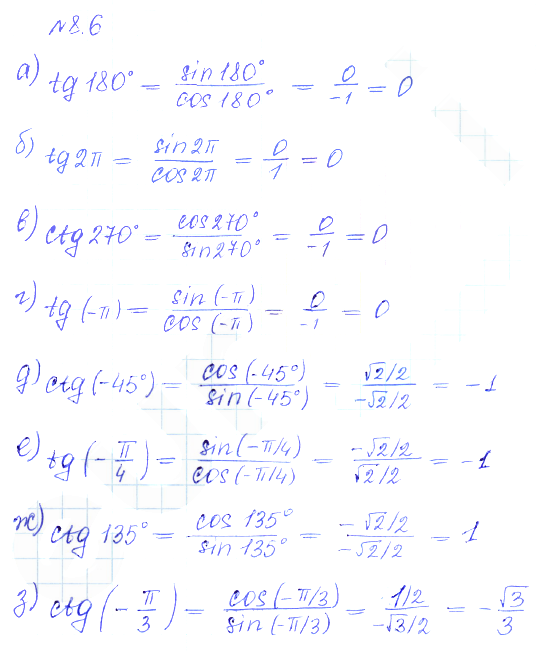 №8.6
а) tg 180° = sin 180° / cos 180° = 0/-1 = 0
б) tg 2π = sin 2π / cos 2π = 0/1 = 0
в) ctg 270° = cos 270° / sin 270° = 0/-1 = 0
г) tg (-π) = sin (-π) / cos (-π) = 0/-1 = 0
д) ctg (-45°) = cos (-45°) / sin (-45°) = √2/2 / -√2/2 = -1
е) tg (-π/4) = sin (-π/4) / cos (-π/4) = -√2/2 / √2/2 = -1
ж) ctg 135° = cos 135° / sin 135° = -√2/2 / -√2/2 = 1
з) ctg (-π/3) = cos (-π/3) / sin (-π/3) = 1/2 / -√3/2 = -√3/3